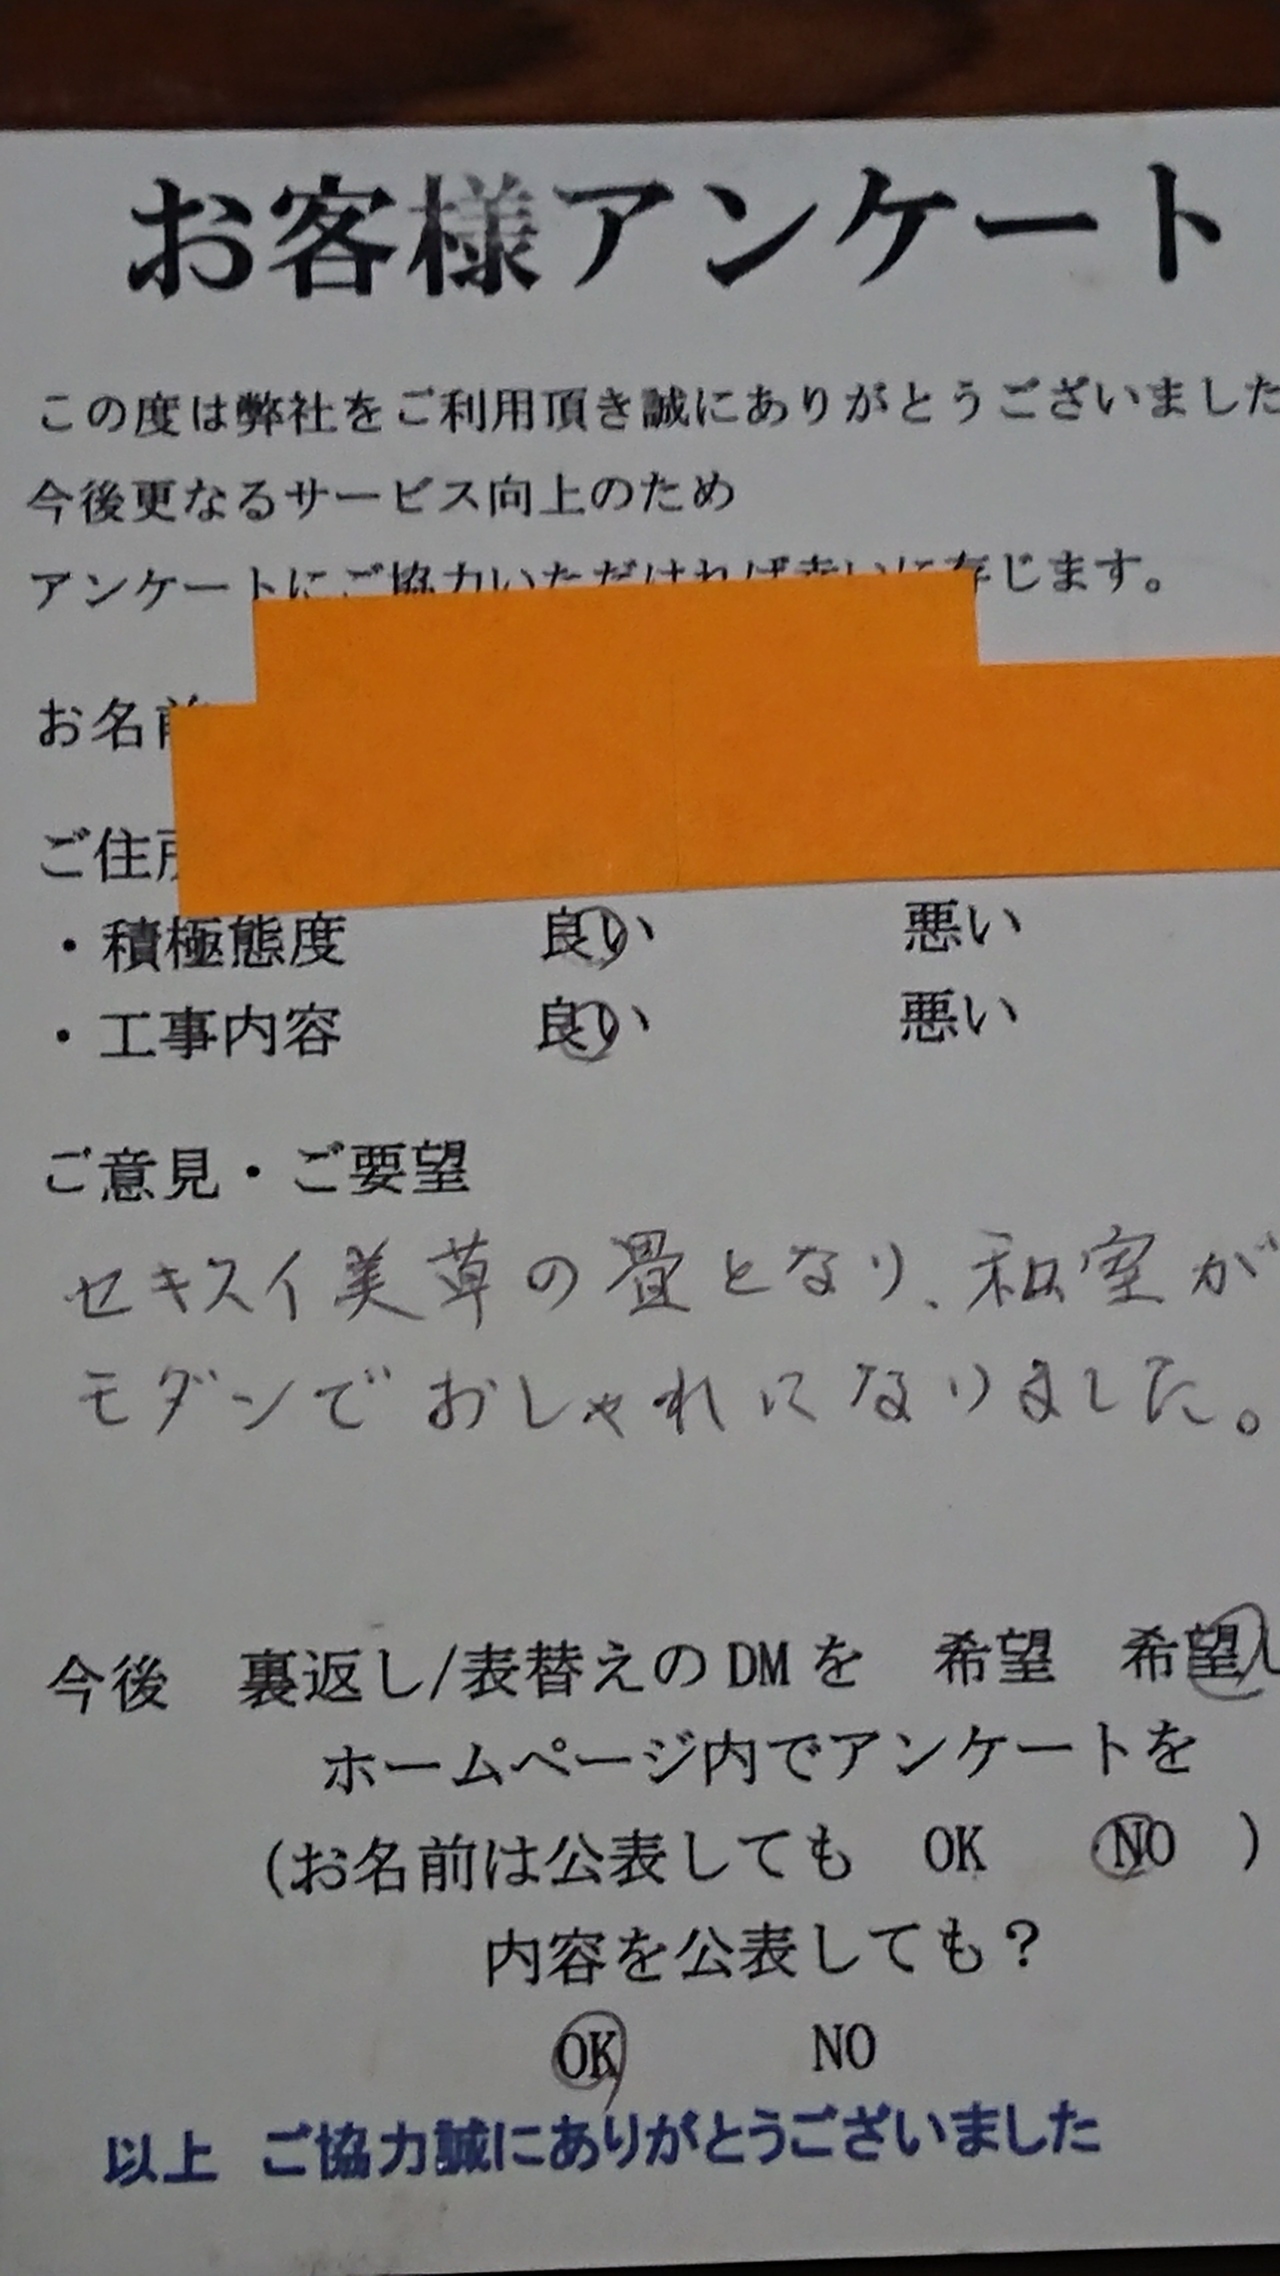 お客様アンケート
この度は弊社をご利用頂き誠にありがとうございました
今後更なるサービス向上のため
アンケートにご協力いただければ幸いに存じます。
お名前
ご住所
・積極態度 良い 悪い
・工事内容 良い 悪い
ご意見・ご要望
セキスイ美草の畳となり、和室が
モダンでおしゃれになりました。
今後 裏返し/表替えのDMを 希望 希望し
ホームページ内でアンケートを
(お名前は公表しても OK NO )
内容を公表しても？
OK NO
以上 ご協力誠にありがとうございました